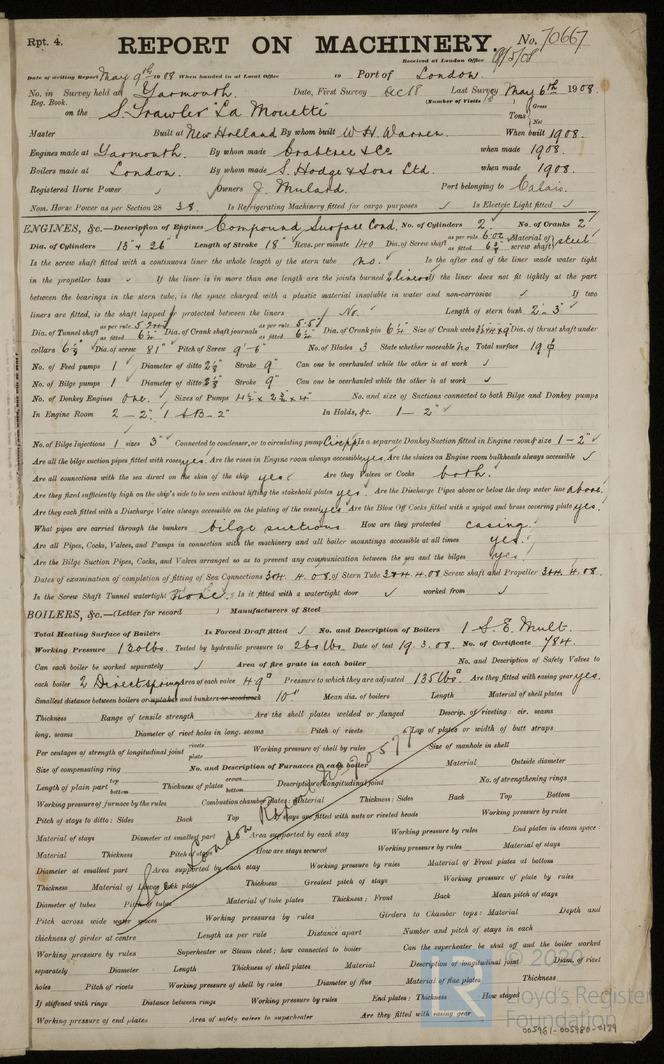 Rpt. 4.
REPORT ON MACHINERY. No. 70667
Received at London Office
Date of writing Report May 9th 1908 When handed in at Local Office 19 Port of London
No. in Survey held at Yarmouth Date, First Survey Dec 18 Last Survey May 6th 1908
Reg. Book. (Number of Visits
on the S. Trawler "La Mouette" Tons Gross Net
Master Built at New Holland By whom built W. H. Warren When built 1908
Engines made at Yarmouth. By whom made Crabtree & Co when made 1908.
Boilers made at London. By whom made S. Hodge & Sons Ltd. when made 1908.
Registered Horse Power Owners J. Mulard. Port belonging to Calais.
Nom. Horse Power as per Section 28 38. Is Refrigerating Machinery fitted for cargo purposes Is Electric Light fitted
ENGINES, &c.—Description of Engines Compound Surface Cond. No. of Cylinders 2 No. of Cranks 2
Dia. of Cylinders 13" & 26" Length of Stroke 18" Revs. per minute 140 Dia. of Screw shaft as per rule 6.02 as fitted Material of screw shaft steel
Is the screw shaft fitted with a continuous liner the whole length of the stern tube no. Is the after end of the liner made water tight
in the propeller boss If the liner is in more than one length are the joints burned 2 liners If the liner does not fit tightly at the part
between the bearings in the stern tube, is the space charged with a plastic material insoluble in water and non-corrosive If two
liners are fitted, is the shaft lapped or protected between the liners No. Length of stern bush 2'-3"
Dia. of Tunnel shaft as per rule as fitted Dia. of Crank shaft journals as per rule 5.5 as fitted 6¼" Dia. of Crank pin 6¼" Size of Crank webs Dia. of thrust shaft under
collars Dia. of screw 81" Pitch of Screw 9'-6" No. of Blades 3 State whether moveable No Total surface 19
No. of Feed pumps 1 Diameter of ditto Stroke 9" Can one be overhauled while the other is at work
No. of Bilge pumps 1 Diameter of ditto Stroke 9" Can one be overhauled while the other is at work
No. of Donkey Engines One. Sizes of Pumps No. and size of Suctions connected to both Bilge and Donkey pumps
In Engine Room 2 - 2" 1 SB - 2" In Holds, &c. 1 - 2"
No. of Bilge Injections 1 sizes 3" Connected to condenser, or to circulating pump Is a separate Donkey Suction fitted in Engine room & size 1 - 2"
Are all the bilge suction pipes fitted with roses yes. Are the roses in Engine room always accessible yes. Are the sluices on Engine room bulkheads always accessible
Are all connections with the sea direct on the skin of the ship yes Are they Valves or Cocks both.
Are they fixed sufficiently high on the ship's side to be seen without lifting the stokehold plates yes. Are the Discharge Pipes above or below the deep water line above.
Are they each fitted with a Discharge Valve always accessible on the plating of the vessel yes Are the Blow Off Cocks fitted with a spigot and brass covering plate yes.
What pipes are carried through the bunkers bilge suctions How are they protected casing.
Are all Pipes, Cocks, Valves, and Pumps in connection with the machinery and all boiler mountings accessible at all times yes.
Are the Bilge Suction Pipes, Cocks, and Valves arranged so as to prevent any communication between the sea and the bilges yes
Dates of examination of completion of fitting of Sea Connections 3rd. 4. 08. of Stern Tube 3rd 4. 08 Screw shaft and Propeller 3rd. 4. 08.
Is the Screw Shaft Tunnel watertight None. Is it fitted with a watertight door worked from
BOILERS, &c.—(Letter for record ) Manufacturers of Steel
Total Heating Surface of Boilers Is Forced Draft fitted No. and Description of Boilers 1 S. E. Mult.
Working Pressure 130 lbs. Tested by hydraulic pressure to 260 lbs. Date of test 19. 3. 08. No. of Certificate 784.
Can each boiler be worked separately Area of fire grate in each boiler No. and Description of Safety Valves to
each boiler 2 Direct spring Area of each valve 4.9" Pressure to which they are adjusted 135 lbs. Are they fitted with easing gear yes.
Smallest distance between boilers or uptakes and bunkers or woodwork 10" Mean dia. of boilers Length Material of shell plates
Thickness Range of tensile strength Are the shell plates welded or flanged Descrip. of riveting: cir. seams
long. seams Diameter of rivet holes in long. seams Pitch of rivets Lap of plates or width of butt straps
Per centages of strength of longitudinal joint rivets plate Working pressure of shell by rules Size of manhole in shell
Size of compensating ring No. and Description of Furnaces in each boiler Material Outside diameter
Length of plain part top bottom Thickness of plates crown bottom Description of longitudinal joint No. of strengthening rings
Working pressure of furnace by the rules Combustion chamber plates: Material Thickness: Sides Back Top Bottom
Pitch of stays to ditto: Sides Back Top If stays are fitted with nuts or riveted heads Working pressure by rules
Material of stays Diameter at smallest part Area supported by each stay Working pressure by rules End plates in steam space:
Material Thickness Pitch of stays How are stays secured Working pressure by rules Material of stays
Diameter at smallest part Area supported by each stay Working pressure by rules Material of Front plates at bottom
Thickness Material of Lower back plate Thickness Greatest pitch of stays Working pressure of plate by rules
Diameter of tubes Pitch of tubes Material of tube plates Thickness: Front Back Mean pitch of stays
Pitch across wide water spaces Working pressures by rules Girders to Chamber tops: Material Depth and
thickness of girder at centre Length as per rule Distance apart Number and pitch of stays in each
Working pressure by rules Superheater or Steam chest; how connected to boiler Can the superheater be shut off and the boiler worked
separately Diameter Length Thickness of shell plates Material Description of longitudinal joint Diam. of rivet
holes Pitch of rivets Working pressure of shell by rules Diameter of flue Material of flue plates Thickness
If stiffened with rings Distance between rings Working pressure by rules End plates: Thickness How stayed
Working pressure of end plates Area of safety valves to superheater Are they fitted with easing gear
See London Report No 70577
© 2020
LR
Lloyd's Register
Foundation
005981-005980-0129